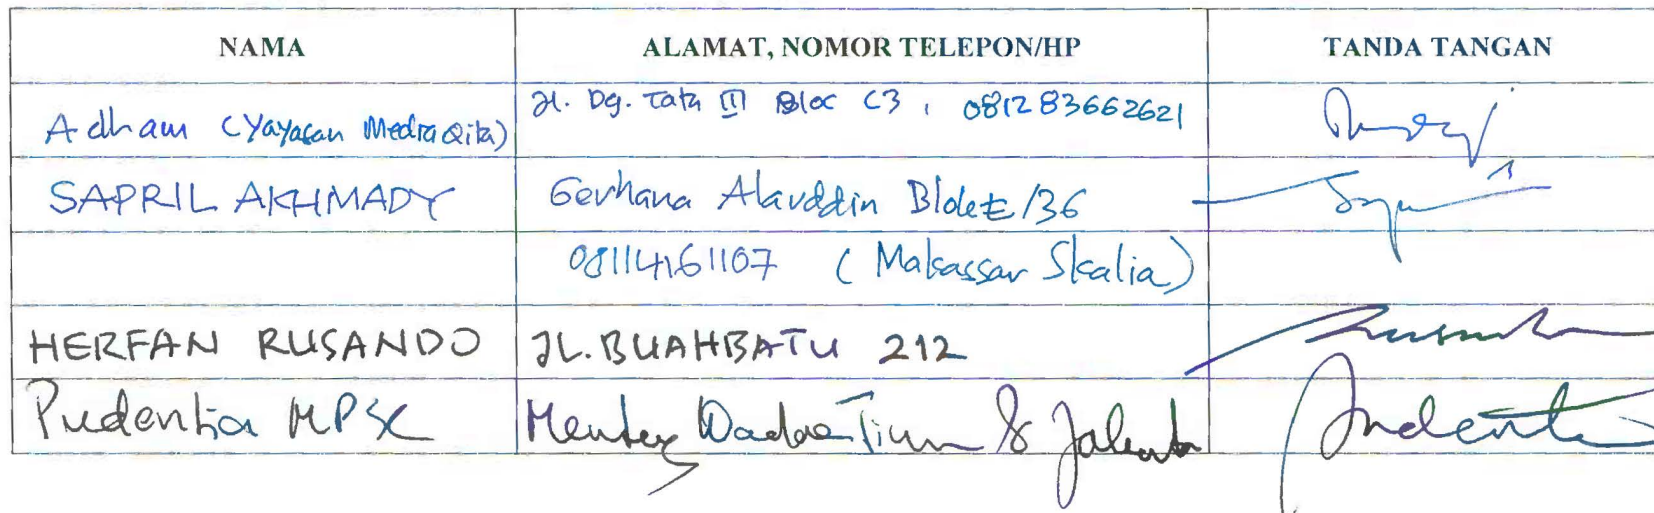 NAMA ALAMAT, NOMOR TELEPON/HP TANDA TANGAN
Adham (Yayasan MediaQita) Jl. Dg. Tata III Bloc C3, 081283662621
SAPRIL AKHMADY Gerhana Alauddin Blok E/36
08114161107 (Makassar Skalia)
HERFAN RUSANDO JL. BUAHBATU 212
Pudentia MPSS Menteng Jakarta